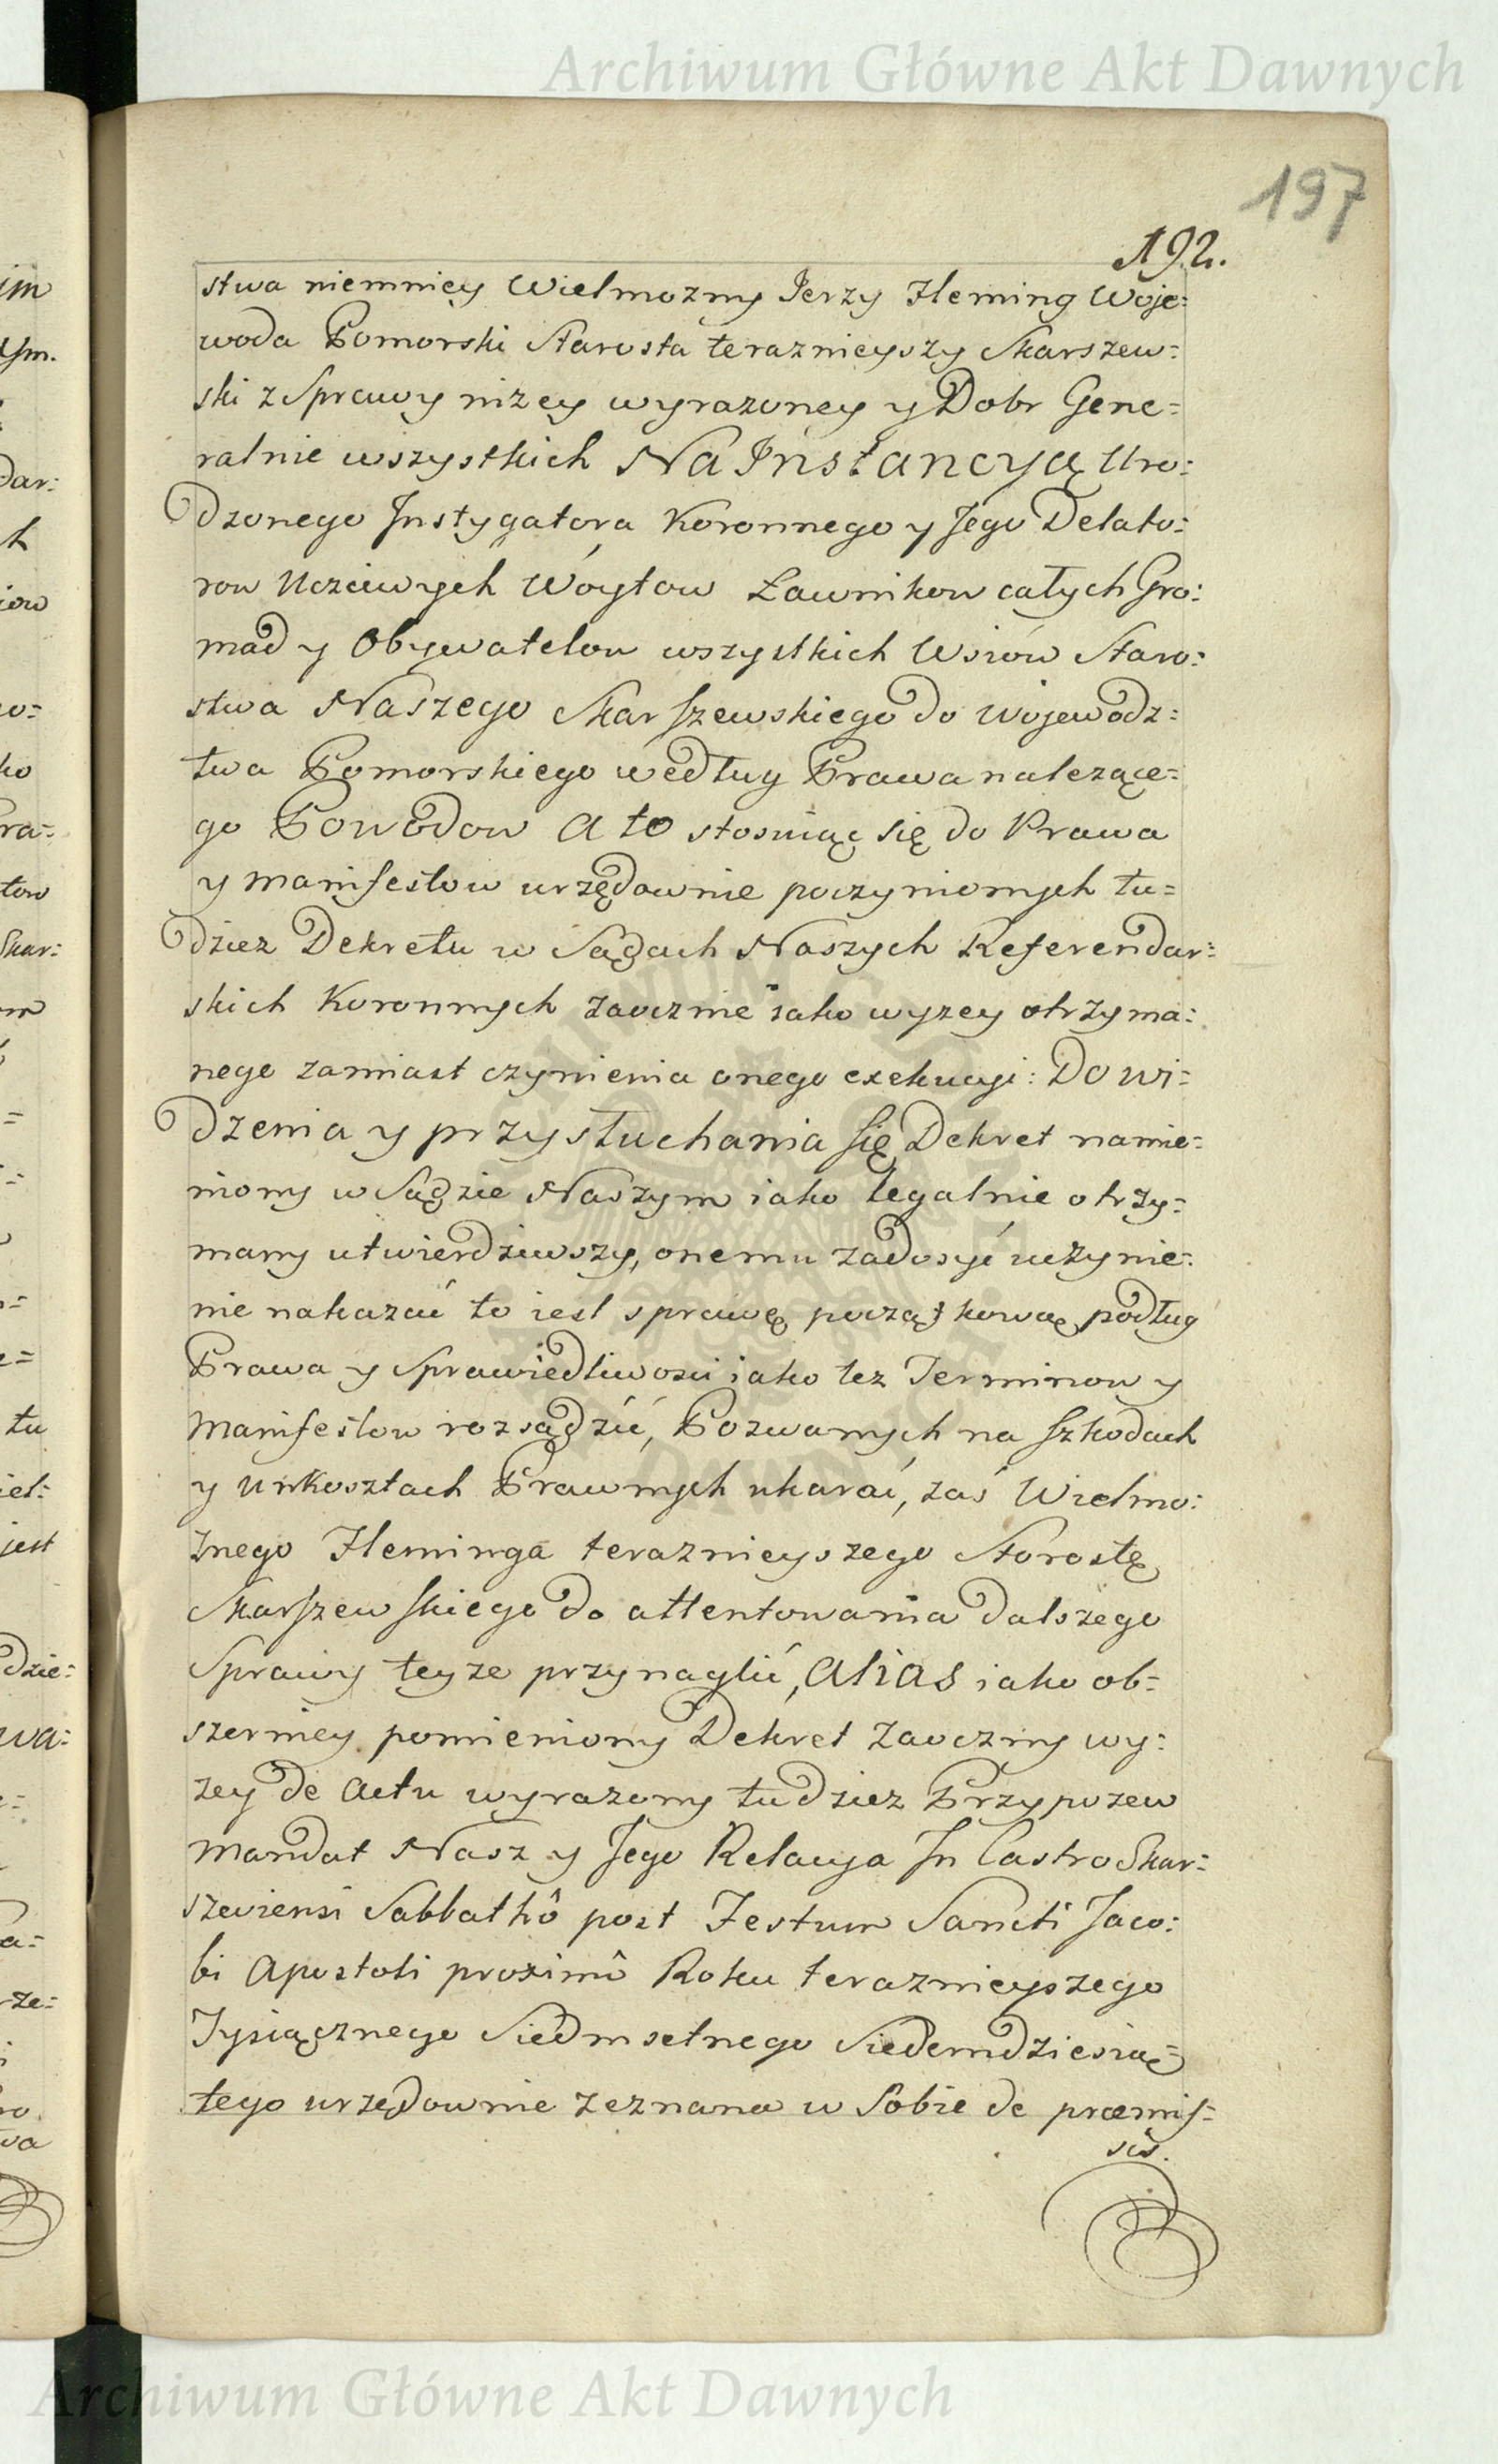 Archiwum Główne Akt Dawnych
197
192.
stwa niemniey Wielmozny Jerzy Fleming Woje=
woda Pomorski Starosta teraznieyszy Skarszew=
ski z Sprawy nizey wyrazoney y Dobr Gene=
ralnie wszystkich Na Instancyą Uro=
dzonego Instygatora Koronnego y Jego Delato=
row Uczciwych Wóytow Ławnikow całych Gro=
mad y Obywatelow wszystkich Wsiow Staro=
stwa Naszego Skarszewskiego do Wojewodz=
twa Pomorskiego według Prawa nalezące=
go Powodow A to stosuiąc się do Prawa
y Manifestow urzędownie poczynionych tu=
dziez Dekretu w Sądach Naszych Referendar=
skich Koronnych zaocznie iako wyzey otrzyma=
nego zamiast czynienia onego exekucyi: Do wi=
dzenia y przysłuchania się Dekret namie=
niony w Sądzie Naszym iako legalnie otrzy=
many utwierdziwszy, onemu zadosyć uczynie=
nie nakazać to iest sprawę początkową podług
Prawa y Sprawiedliwosci iako tez Terminow y
Manifestow rozsądzić, Pozwanych na szkodach
y Unkosztach Prawnych ukarać, zaś Wielmo=
znego Fleminga teraznieyszego Starostę
Skarszewskiego do attentowania dalszego
Sprawy teyze przynaglić, Alias iako ob=
szerniey pomieniony Dekret Zaoczny wy=
zey de Actu wyrazony tudziez Przypozew
Mandat Nasz y Jego Relacya In Castro Skar=
szeviensi Sabbathô post Festum Sancti Jaco=
bi Apostoli proximô Roku teraznieyszego
Tysiącznego Siedmsetnego Siedemdziesią=
tego urzędownie zeznana w Sobie de præmis=
sis.
Archiwum Główne Akt Dawnych